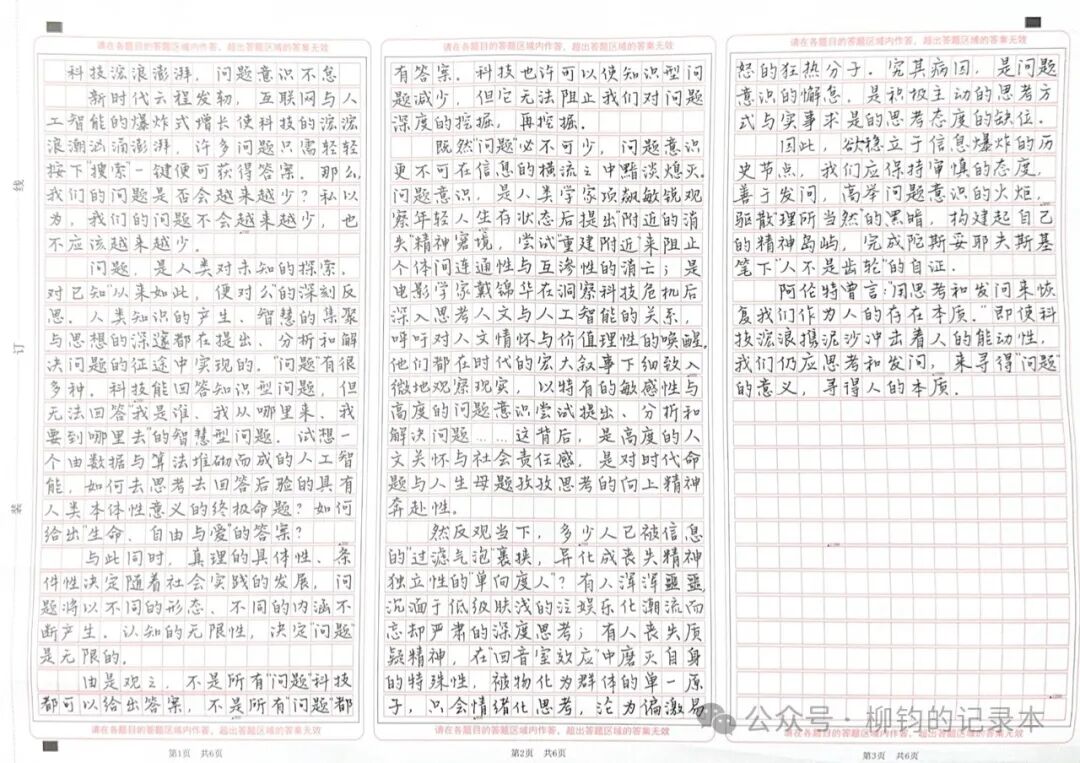 请在各题目的答题区域内作答，超出答题区域的答案无效
科技浪浪澎湃，问题意识不怠
新时代云程发轫，互联网与人
工智能的爆炸式增长使科技的滚滚
浪潮汹涌澎湃，许多问题只需轻轻
按下“搜索”一键便可获得答案。那么，
我们的问题是否会越来越少？私以
为，我们的问题不会越来越少，也
不应该越来越少。
问题，是人类对未知的探索，
对已知“从来如此，便对么”的深刻反
思。人类知识的产生、智慧的集聚
与思想的深邃都在提出、分析和解
决问题的征途中实现的。“问题”有很
多种，科技能回答知识型问题，但
无法回答“我是谁、我从哪里来、我
要到哪里去”的智慧型问题。试想一
个由数据与算法堆砌而成的人工智
能，如何去思考去回答后验的具有
人类本体性意义的终极命题？如何
给出“生命、自由与爱”的答案？
与此同时，真理的具体性、条
件性决定随着社会实践的发展，问
题将以不同的形态、不同的内涵不
断产生。认知的无限性，决定“问题”
是无限的。
由是观之，不是所有“问题”科技
都可以给出答案，不是所有“问题”都
请在各题目的答题区域内作答，超出答题区域的答案无效
第1页 共6页
请在各题目的答题区域内作答，超出答题区域的答案无效
有答案。科技也许可以使知识型问
题减少，但它无法阻止我们对问题
深度的挖掘，再挖掘。
既然“问题”必不可少，问题意识
更不可在信息的横流之中黯淡熄灭。
问题意识，是人类学家项飙敏锐观
察年轻人生存状态后提出“附近的消
失”精神窘境，尝试“重建附近”来阻止
个体间连通性与互渗性的消亡；是
电影学家戴锦华在洞察科技危机后
深入思考人文与人工智能的关系，
呼吁对人文情怀与价值理性的唤醒。
他们都在时代的宏大叙事下细致入
微地观察现实，以特有的敏感性与
高度的问题意识尝试提出、分析和
解决问题……这背后，是高度的人
文关怀与社会责任感，是对时代命
题与人生母题孜孜思考的向上精神
奔赴性。
然反观当下，多少人已被信息
的“过滤气泡”裹挟，异化成丧失精神
独立性的“单向度人”？有人浑浑噩噩，
沉湎于低级肤浅的泛娱乐化潮流而
忘却严肃的深度思考；有人丧失质
疑精神，在“回音室效应”中磨灭自身
的特殊性，被物化为群体的单一原
子，只会情绪化思考，沦为偏激易
请在各题目的答题区域内作答，超出答题区域的答案无效
第2页 共6页
请在各题目的答题区域内作答，超出答题区域的答案无效
怒的狂热分子。究其病因，是问题
意识的懈怠，是积极主动的思考方
式与实事求是的思考态度的缺位。
因此，欲稳立于信息爆炸的历
史节点，我们应保持审慎的态度，
善于发问，高举问题意识的火炬，
驱散“理所当然”的黑暗，构建起自己
的精神岛屿，完成陀斯妥耶夫斯基
笔下“人不是齿轮”的自证。
阿伦特曾言：“用思考和发问来恢
复我们作为人的存在本质。”即使科
技浪浪携泥沙冲击着人的能动性，
我们仍应思考和发问，来寻得“问题”
的意义，寻得人的本质。
请在各题目的答题区域内作答，超出答题区域的答案无效
第3页 共6页
线
订
装
公众号·柳钧的记录本